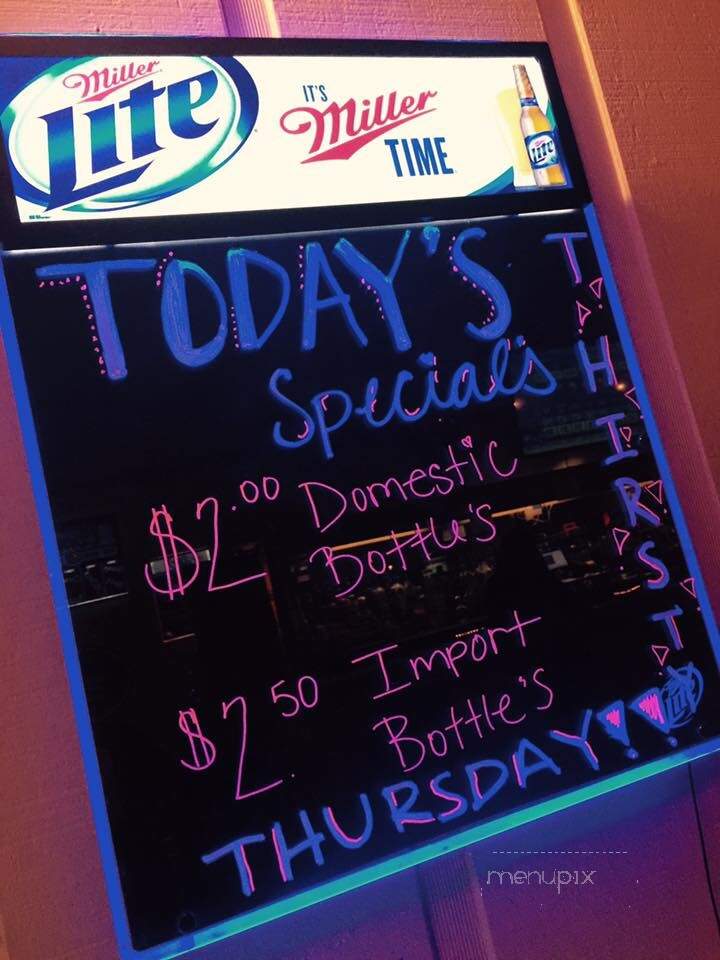 Miller
Lite
IT'S
Miller
TIME
Lite
TODAY'S
Special's
$2.00 Domestic
Bottle's
$2.50 Import
Bottle's
THIRST
THURSDAY!!
menupix